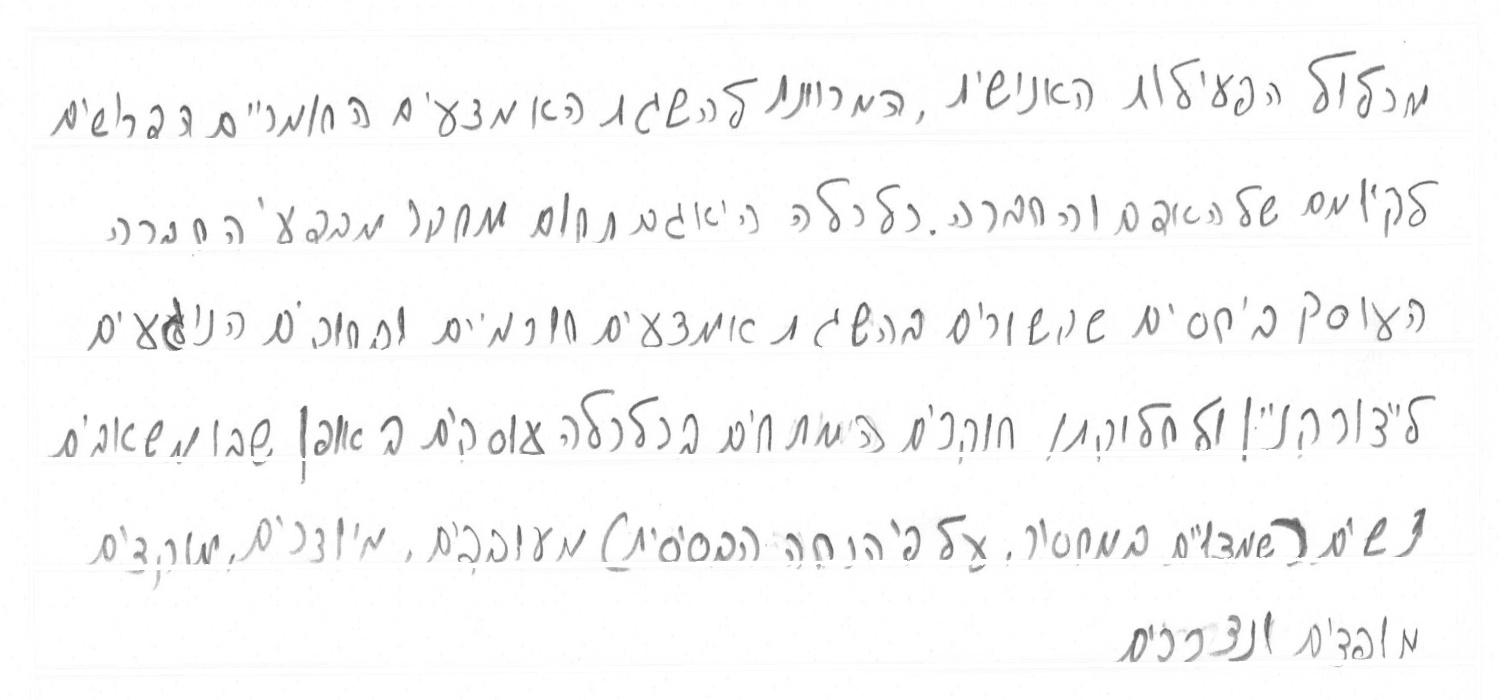 מכלול הפעילות האנושית, המכוונת להשגת האמצעים החומריים הדרושים
לקיומם של האדם והחברה. כלכלה היא גם תחום מחקר ממדעי החברה
העוסק ביחסים שקשורים בהשגת אמצעים חומריים ותחומים הנוגעים
לייצור קניין ולחלוקתו, חוקרים המתמחים בכלכלה עוסקים באופן שבו משאבים
שונים (שמצויים במחסור, על פי הנחה הבסיסית) מעובדים, מיוצרים, מוקצים
מופצים ונצרכים